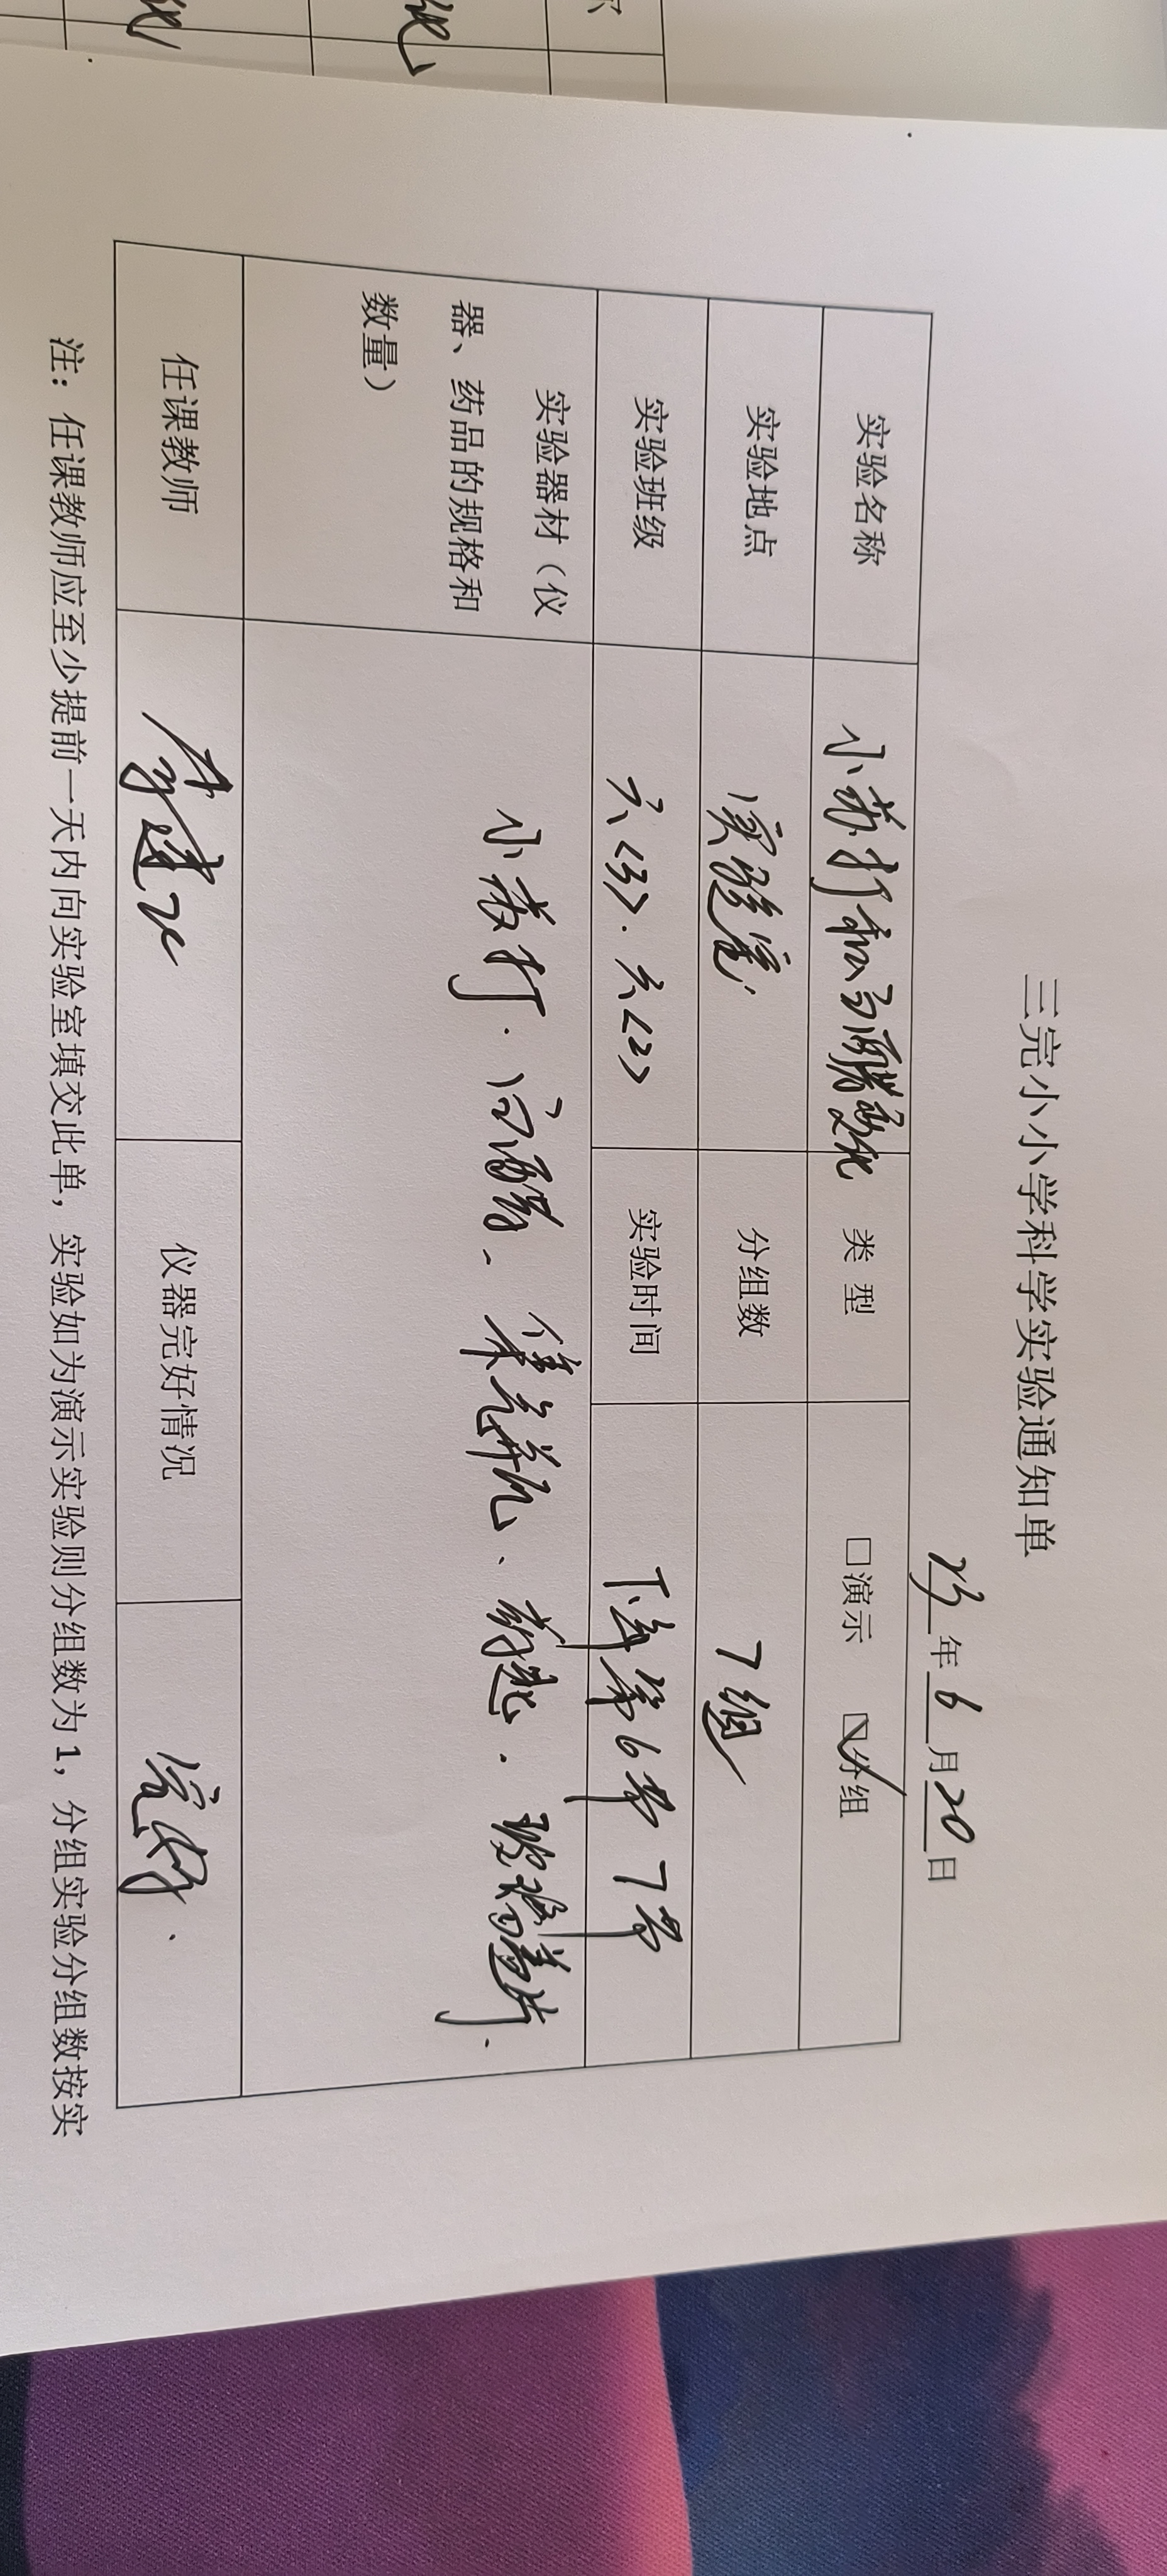 三完小小学科学实验通知单
23年6月20日
实验名称 小苏打和白醋变化 类 型 □演示 ☑分组
实验地点 实验室 分组数 7组
实验班级 六<3>.六<2> 实验时间 下午第6节 7节
实验器材（仪
器、药品的规格和
数量）
小苏打.白醋、集气瓶、药匙.玻璃片.
任课教师 李建 仪器完好情况 完好.
注：任课教师应至少提前一天内向实验室填交此单，实验如为演示实验则分组数为1，分组实验分组数按实